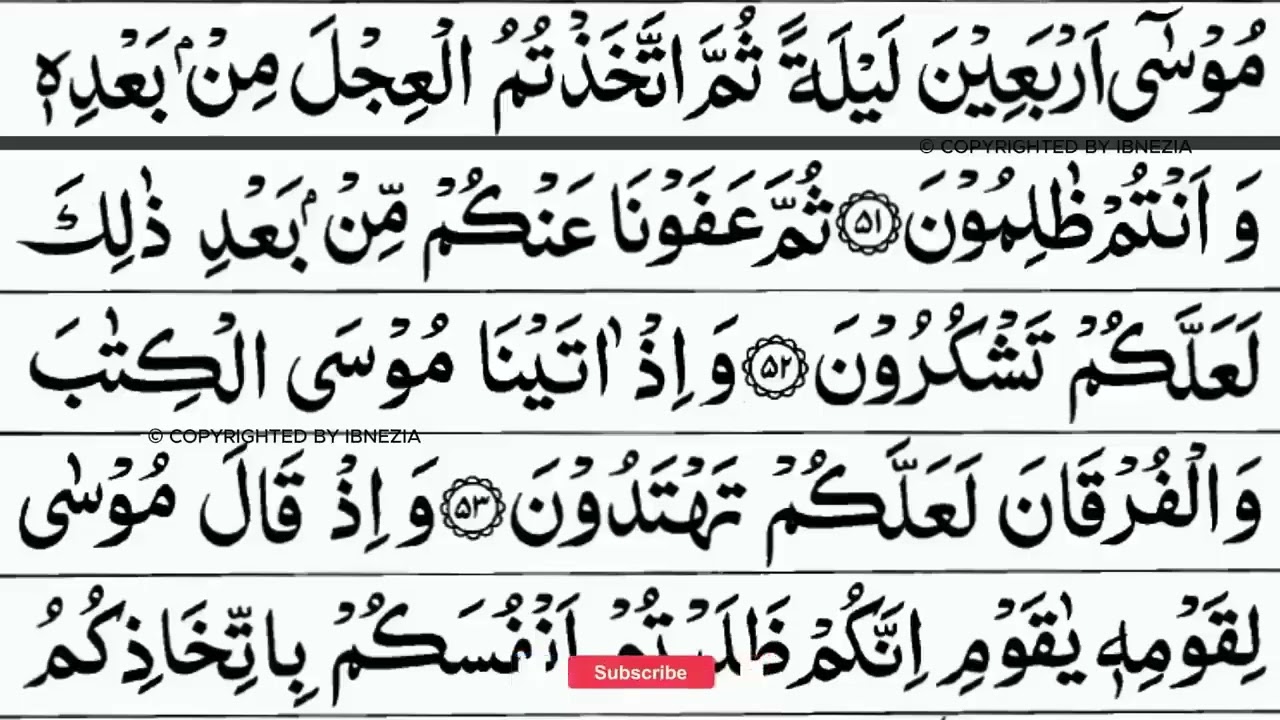 مُوْسٰۤى اَرْبَعِيْنَ لَيْلَةً ثُمَّ اتَّخَذْتُمُ الْعِجْلَ مِنْۢ بَعْدِهٖ
© COPYRIGHTED BY IBNEZIA
وَ اَنْتُمْ ظٰلِمُوْنَ ۝۵۱ ثُمَّ عَفَوْنَا عَنْكُمْ مِّنْۢ بَعْدِ ذٰلِكَ
لَعَلَّكُمْ تَشْكُرُوْنَ ۝۵۲ وَ اِذْ اٰتَيْنَا مُوْسَى الْكِتٰبَ
© COPYRIGHTED BY IBNEZIA
وَالْفُرْقَانَ لَعَلَّكُمْ تَهْتَدُوْنَ ۝۵۳ وَ اِذْ قَالَ مُوْسٰى
لِقَوْمِهٖ يٰقَوْمِ اِنَّكُمْ ظَلَمْتُمْ اَنْفُسَكُمْ بِاتِّخَاذِكُمُ
Subscribe